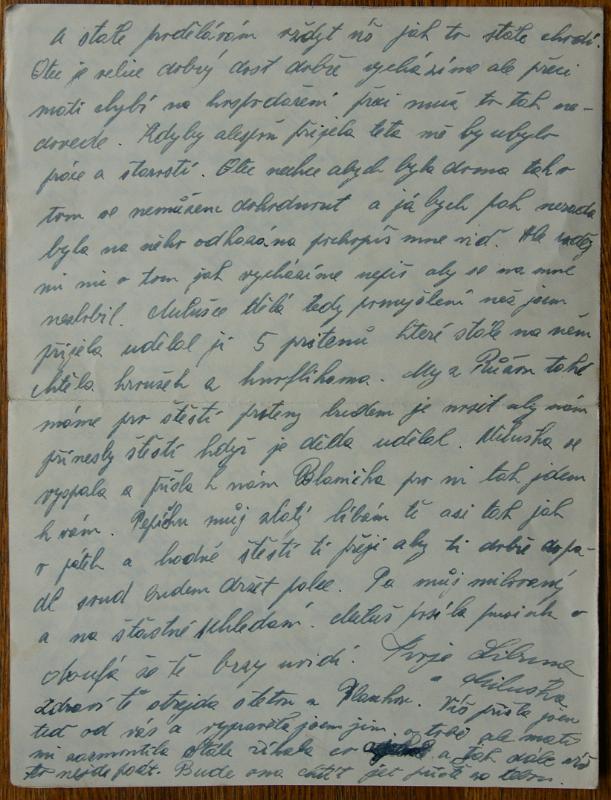 A stále prodělávám vždyť víš jak to stále chodí.
Otec je velice dobrý dost dobře vycházíme ale přeci
máti chybí na hospodaření přeci mu to tak ne-
dovede. Kdyby alespoň přijela teta mě by ubylo
práce a starostí. Otec nechce abych byla doma tak o
tom se nemůžem dohodnout a já bych pak nerada
byla na něho odkázána pochopíš mne viď. Ale raděj
mi nic o tom jak vycházíme nepiš aby se na mne
nezlobil. Milušce dělá tedy pomyšlení než jsem
přijela udělal jí 5 prstenů které stále na něm
chtěla kroužek a . My z taky
máme pro štěstí prsteny budem je nosit aby nám
přinesly štěstí když je děda udělal. Miluška se
vyspala a přišla k nám pro ni tak jdem
k vám. Pepíčku můj zlatý líbám tě asi tak jak
v pátek a hodně štěstí ti přeji aby ti dobře dopa-
dl soud budem držet palce. Pa můj milovaný
a na šťastné shledání. Miluš posílá pusinku a
doufá že tě brzy uvidí. Tvoje Libuna
a Miluška
Zdraví tě strejda s tetou a . Víš přišla jsem
teď od vás a vyprávěla jsem jim o tobě ale máti
mi zarmoutila stále říkala co a tak dále víš
to nejde psát. Bude ona chtít jet příště za tebou.